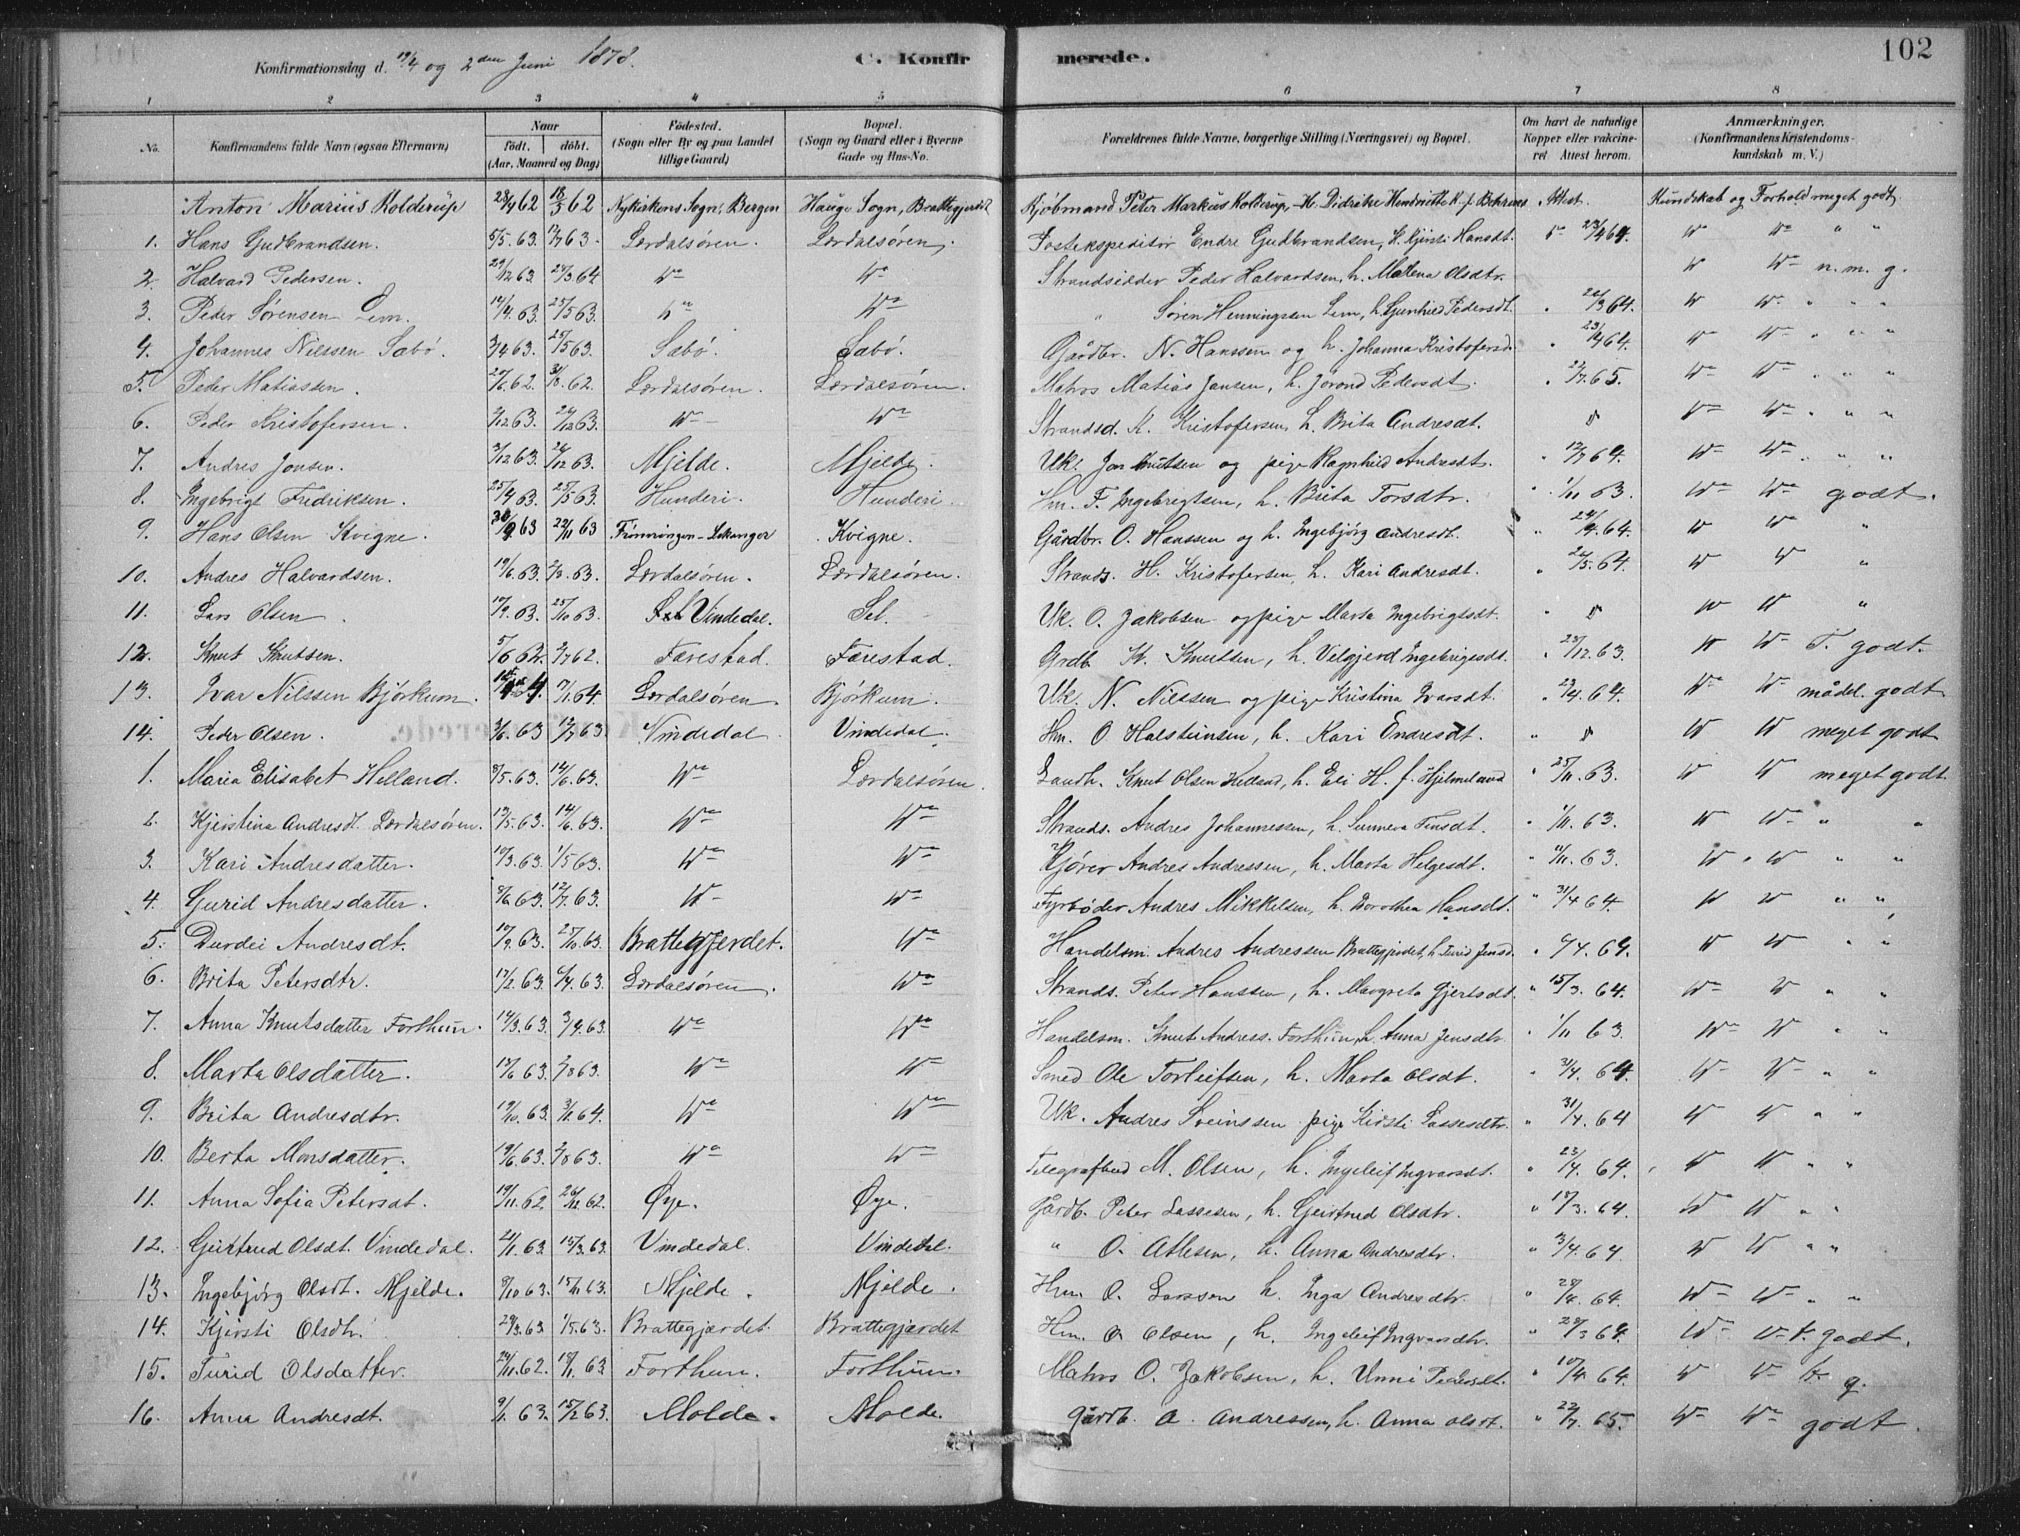 Konfirmationsdag d. 19/4 og 2den Juni 1878. C. Konfirmerede. 102
1 2 3 4 5 6 7 8
No. Konfirmandens fulde Navn (ogsaa Efternavn) Naar födt. döbt. (Aar, Maaned og Dag) Födested. (Sogn eller By og paa Landet tillige Gaard) Bopæl. (Sogn og Gaard eller i Byerne Gade og Hus-No. Forældrenes fulde Navne, borgerlige Stilling (Næringsvei) og Bopæl. Om havt de naturlige Kopper eller vakcineret Attest herom. Anmærkninger. (Konfirmandens Kristendomskundskab m. V.)
Anton Marius Kolderup 62 18/3 62 Nykirkens Sogn, Bergen Hauge Sogn, Brattegjerdet Kjöbmand Peter Markus Kolderup, H. Didrike Hendriette K. f. Behrens Attest. Kundskab og Forhold meget godt
1. Hans Gudbrandsen. 5/5.63. 12/7 63. Lærdalsören. Lærdalsören. Postekspeditör Endre Gudbrandsen, h. Kjersti Hansdt. 23/4 64. " "
2. Halvard Pedersen. 29/12 63. 28/3 64 Strandsidder Peder Halvardsen, h. Malena Olsdtr. n. m. g.
3. Peder Sörensen Lem. 14/4.63. 25/5 63. " Sören Henningsen Lem, h. Gunhild Pedersdt. 22/3 64. " "
4. Johannes Nilssen Sæbö. 3/4 63. 25/5 63. Sæbö. Sæbö. Gårdbr. N. Hanssen og h. Johanna Kristofersd. 23/4 64. " "
5. Peder Matiassen. 27/6 62. 31/8 62. Lærdalsören. Lærdalsören. Matros Matias Jansen, h. Jorond Pedersdt. 22/7.65. " "
6. Peder Kristofersen. 2/12 63. 26/12 63. Strandsd. K. Kristofersen, h. Brita Andresdt. " "
7. Andres Jonsen. 3/12 63. 26/12 63. Mjelde. Mjelde. Uk. Jon Knutsen og pige Ragnhild Andresdt. 12/7 64. " "
8. Ingebrigt Fredriksen. 25/4 63. 25/5 63. Hunderi. Hunderi. Hm. F. Ingebrigtsen, h. Brita Torsdtr. 1/11 63. godt.
9. Hans Olsen Kvigne. 30/9 63 22/11 63 Leikanger Kvigne. Gårdbr. O. Hanssen og h. Ingebjörg Andresdt. 24/4.64. "
10. Andres Halvardsen. 19/6.63. 2/8.63. Lærdalsören. Lærdalsören. Strands. H. Kristofersen, h. Kari Andresdt. 24/5.64. "
11. Lars Olsen. 17/9.63. 25/10 63. Vindedal. Sel. Uk. O. Jakobsen og pige Marta Ingebrigtsdt. "
12. Knut Knutsen. 5/6 62. 2/7 62. Farestad. Farestad. Grdb. K. Knutsen, h. Velgjerd Ingebrigtsdt. 28/12.63. T. godt.
13. Ivar Nilssen Björkum. 7/1 64. Lærdalsören Björkum. Uk. N. Nilssen og pige Kristina Ivarsdt. 23/4.64. mådel. godt
14. Peder Olsen. 3/6. 63 12/7 63 Vindedal. Vindedal. Hm. O Halsteinsen, h. Kari Endresdt. meget godt
1. Maria Elisabet Helland. 8/5.63. 14/6.63. Lærdalsören. Landh. Knut Olsen Helland, h. Eli H. f. Hjelmeland 25/11.63. meget godt.
2. Kjerstina Andresdt. Lærdalsören. 13/5.63. 14/6.63. Strands. Andres Johannessen, h. Sunneva Finsdt. 1/11.63. " "
3. Kari Andresdatter. 10/3.63. 1/5 63. Kjörer Andres Andressen, h. Marta Helgesdt. 11/11.63. " "
4. Gurid Andresdatter. 8/6 63. 12/7.63. Fyrböder Andres Mikkelsen, h. Dorothea Hansdt. 31/4 64. " "
5. Durdei Andresdt. 17/9.63. 25/10.63. Brattegjerdet. Handelsm. Andres Andressen Brattegjerdet, h. Turid Jensd. 64. " "
6. Brita Petersdtr. 17/2.63. 6/4.63. Lærdalsören. Strands. Peter Hanssen, h. Margreta Gjertsdt. 15/3.64. " "
7. Anna Knutsdatter Forthun. 14/3.63. 3/9.63. Handelsm. Knut Andress. Forthun, h. Anna Jensdtr. 1/11 63. " "
8. Marta Olsdatter. 17/6 63. 2/8 63. Smed Ole Torleifsen, h. Marta Olsdt. 31/4.64. " "
9. Brita Andresdtr. 19/10.63. 3/1.64. Uk. Andres Sveinssen pige Kirsti Lassesdtr. 31/4.64 " "
10. Berta Monsdatter. 19/6.63. 2/8 63. Telegrafbud M. Olsen, h. Ingeleif Ingvarsdt. 23/4.64. " "
11. Anna Sofia Petersdt. 19/11.62. 26/12.62. Öye. Öye. Gårdb. Peter Lassesen, h. Geirtrud Olsdtr. 17/3.64. " "
12. Geirtrud Olsdt. Vindedal. 21/1.63. 15/3.63. Vindedal. Vindedal. " O. Atlesen, h. Anna Andresdtr. 3/4.64 " "
13. Ingebjörg Olsdt. Mjelde. 8/10 63. 15/11 63. Mjelde. Mjelde. Hm. O. Larssen h. Inga Andresdtr. 28/4.64. " "
14. Kjersti Olsdtr. 29/3.63. 1/5.63. Brattegjærdet. Brattegjærdet Hm. O. Olsen, h. Ingeleif Ingvarsdtr. 28/3 64. t. godt.
15. Turid Olsdatter. 24/11.62. 18/1 63 Forthun. Forthun. Matros O. Jakobsen, h. Unni Pedersdt. 10/4.64. t. g.
16. Anna Andresdt. 9/1.63. 15/2 63. Molde. Molde. Gårdb. A. Andressen, h. Anna Olsdt. 22/7.65. godt.